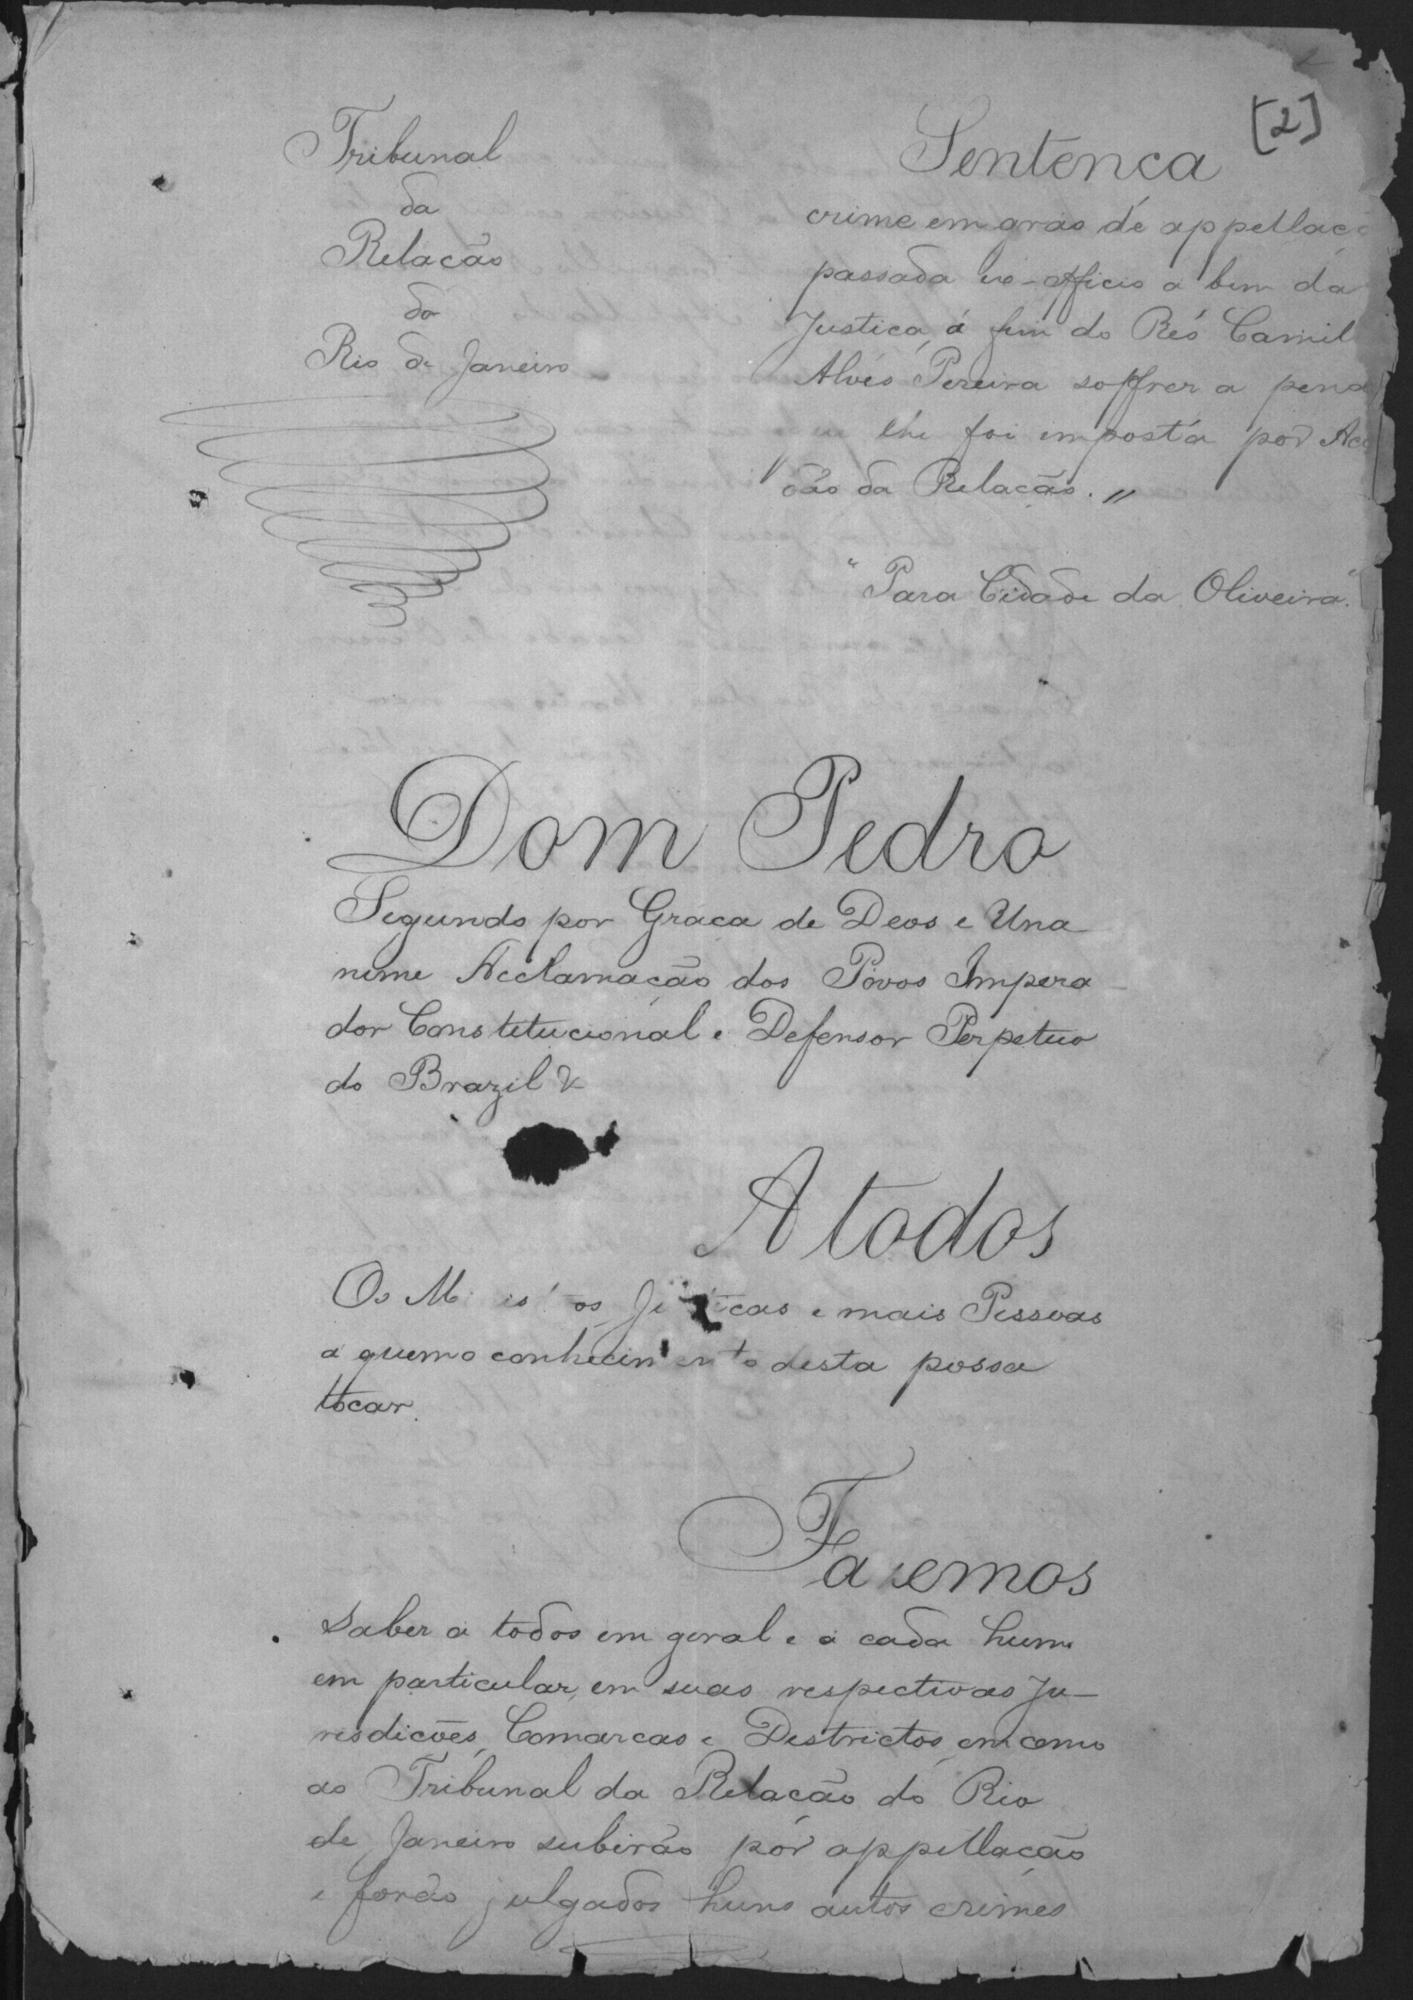 [2]
Tribunal
da
Relacão
do
Rio de Janeiro
Sentenca
crime em gráo de appellacã
passada ex-officio a bem da
Justica, á fim do Réo Camil
Alves Pereira soffrer a pena
lhe foi imposta por Acc
dão da Relacão. //
"Para Cidade da Oliveira"
Dom Pedro
Segundo por Graca de Deos e Una
nime Acclamacão dos Povos Impera-
dor Constitucional e Defensor Perpetuo
do Brazil &
A todos
Os Ministros Justicas e mais Pessoas
a quem o conhecimento desta possa
tocar.
Fazemos
saber a todos em geral e a cada hum
em particular, em suas respectivas Ju-
risdicões, Comarcas e Destrictos, em como
ao Tribunal da Relacão do Rio
de Janeiro subirão por appellacão
e forão julgados huns autos crimes